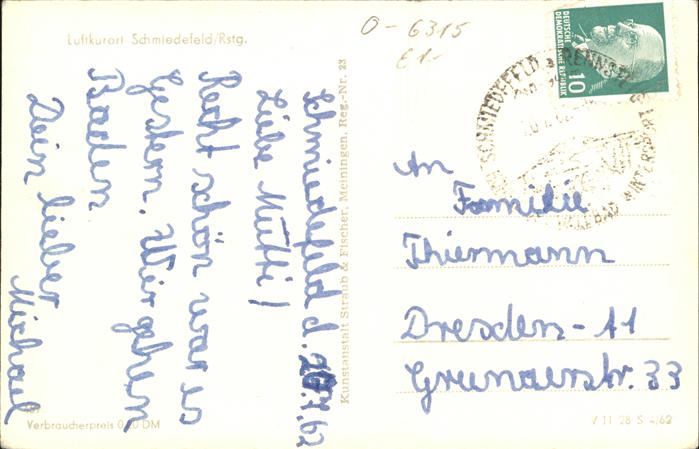 Luftkurort Schmiedefeld/Rstg.
O-6315
£1-
DEUTSCHE
DEMOKRATISCHE REPUBLIK
10
SCHMIEDEFELD
WINTERSPORT
Schmiedefeld d. 20.7.62
Liebe Mutti!
Recht schön war es
Gestern. Wir gehen
Baden
Dein lieber
Michael
An
Familie
Thiermann
Dresden-A1
Grunaerstr. 33
Kunstanstalt Straub & Fischer, Meiningen, Reg.-Nr. 23
Verbraucherpreis 0,20 DM
V 11 28 S 4/62